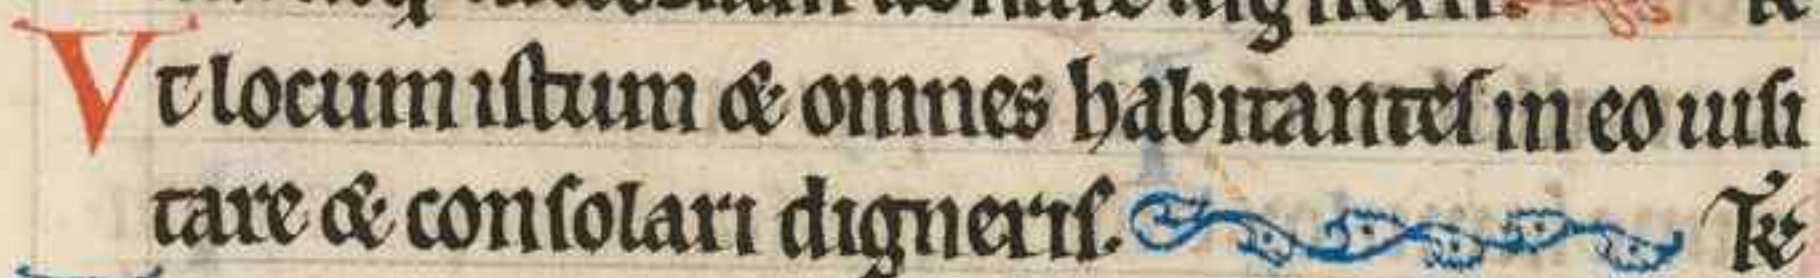 Vt locum istum & omnes habitantes in eo uisi
tare & consolari digneris. Te